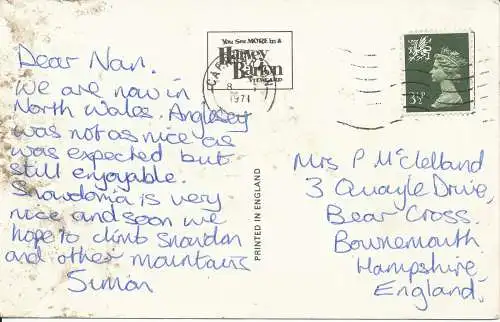 Dear Nan.
We are now in
North Wales. Anglesey
was not as nice as
was expected but
still enjoyable.
Snowdonia is very
nice and soon we
hope to climb Snowdon
and other mountains
Simon
You See MORE in a
Harvey
Barton
VIEWCARD
8
1971
3½ P
PRINTED IN ENGLAND
Mrs P McClelland
3 Quayle Drive,
Bear Cross.
Bournemouth
Hampshire
England.